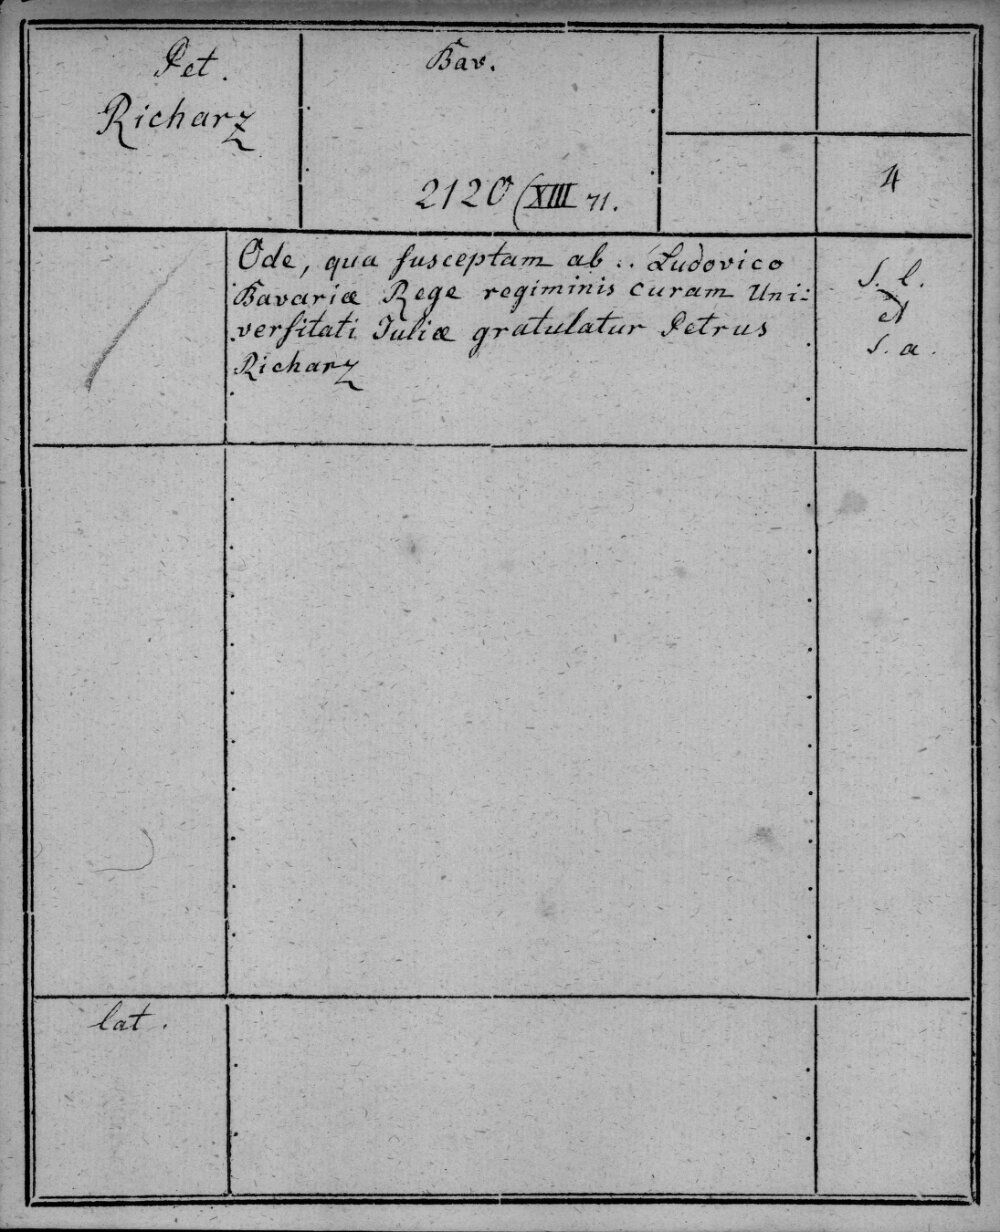 Pet.
Richarz
Bav.
2120 (XIII 71.
4
Ode, qua susceptam ab .. Ludovico
Bavariæ Rege regiminis curam Uni-
versitati Juliæ gratulatur Petrus
Richarz
s. l.
et
s. a.
lat.